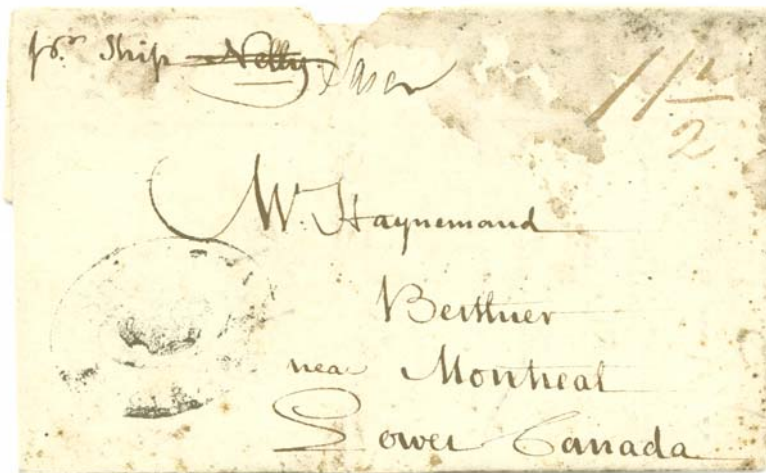 pr. Ship Nelly
11 1/2
Mr. Haynemand
Berthier
near Montreal
Lower Canada